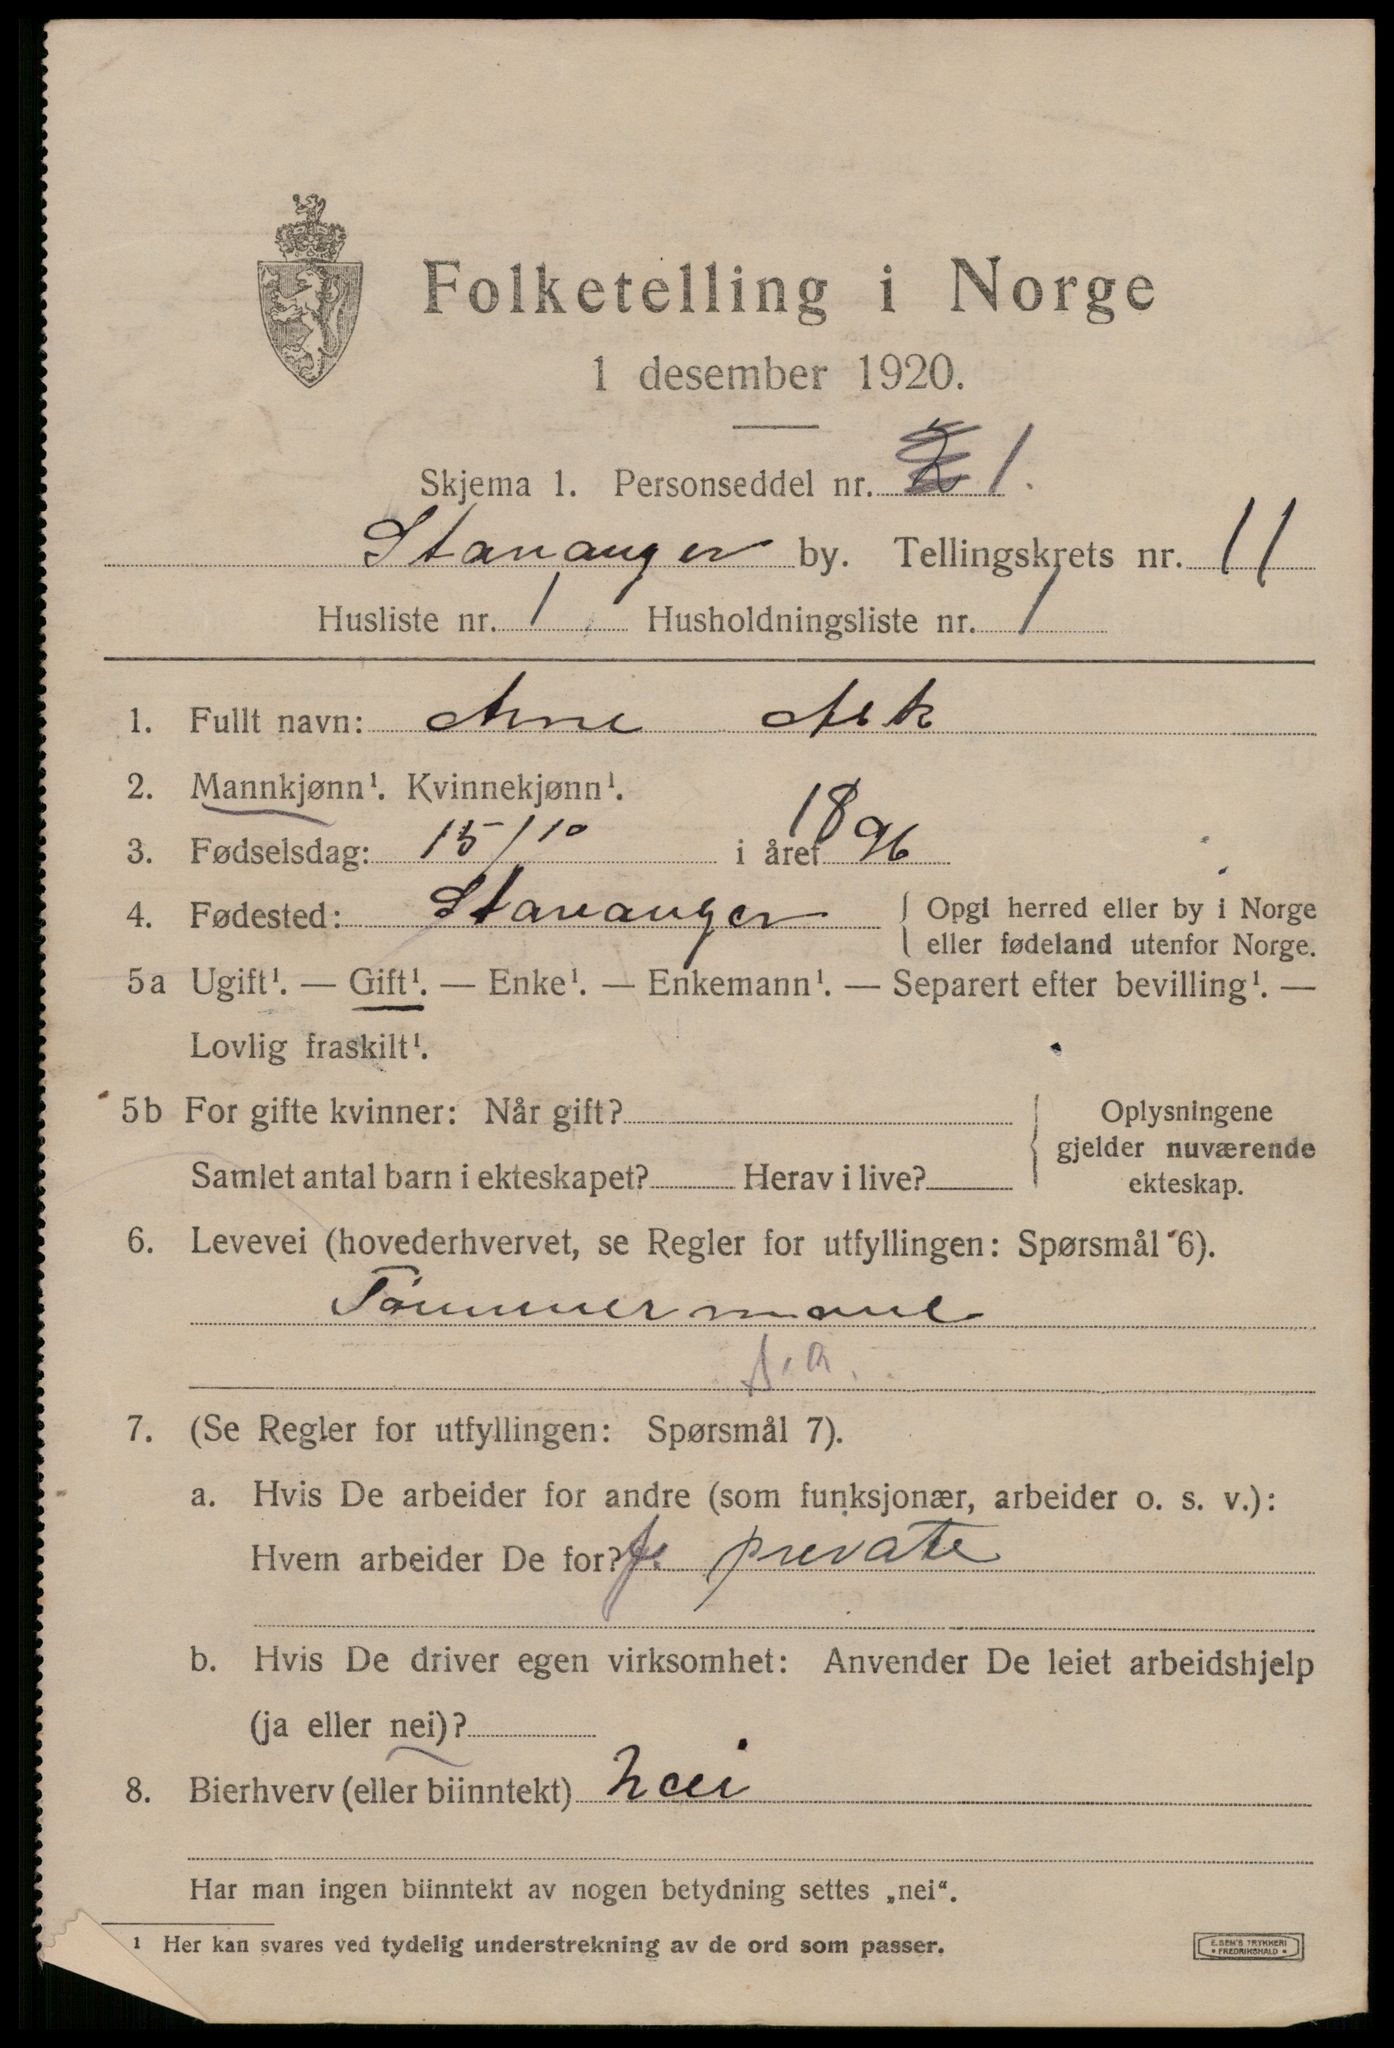 Folketelling i Norge
1 desember 1920.
Skjema 1. Personseddel nr. 1.
Stavanger by. Tellingskrets nr. 11
Husliste nr. 1 Husholdningsliste nr. 1
1. Fullt navn: Arne Ask
2. Mannkjønn¹. Kvinnekjønn¹.
3. Fødselsdag: 15/10 i året 1896
4. Fødested: Stavanger { Opgi herred eller by i Norge
eller fødeland utenfor Norge.
5a Ugift¹. — Gift¹. — Enke¹. — Enkemann¹. — Separert efter bevilling¹. —
Lovlig fraskilt¹.
5b For gifte kvinner: Når gift? { Oplysningene
gjelder nuværende
Samlet antal barn i ekteskapet? Herav i live? ekteskap.
6. Levevei (hovederhvervet, se Regler for utfyllingen: Spørsmål 6).
Tømmermand
s.a.
7. (Se Regler for utfyllingen: Spørsmål 7).
a. Hvis De arbeider for andre (som funksjonær, arbeider o. s. v.):
Hvem arbeider De for? private
b. Hvis De driver egen virksomhet: Anvender De leiet arbeidshjelp
(ja eller nei)?
8. Bierhverv (eller biinntekt) nei
Har man ingen biinntekt av nogen betydning settes „nei“.
¹ Her kan svares ved tydelig understrekning av de ord som passer.
E. SEM'S TRYKKERI
• FREDRIKSHALD •